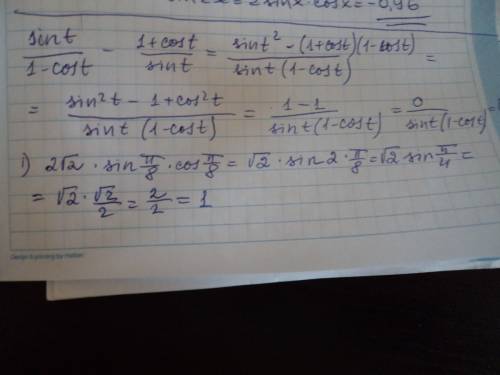 sin2x = 2sinx·cosx = -0,96
sint/(1-cost) - (1+cost)/sint = (sint² - (1+cost)(1-cost))/(sint(1-cost)) =
= (sin²t - 1 + cos²t)/(sint(1-cost)) = (1-1)/(sint(1-cost)) = 0/(sint(1-cost)) =
1) 2√2 · sin π/8 · cos π/8 = √2 · sin 2 · π/8 = √2 sin π/4 =
= √2 · √2/2 = 2/2 = 1